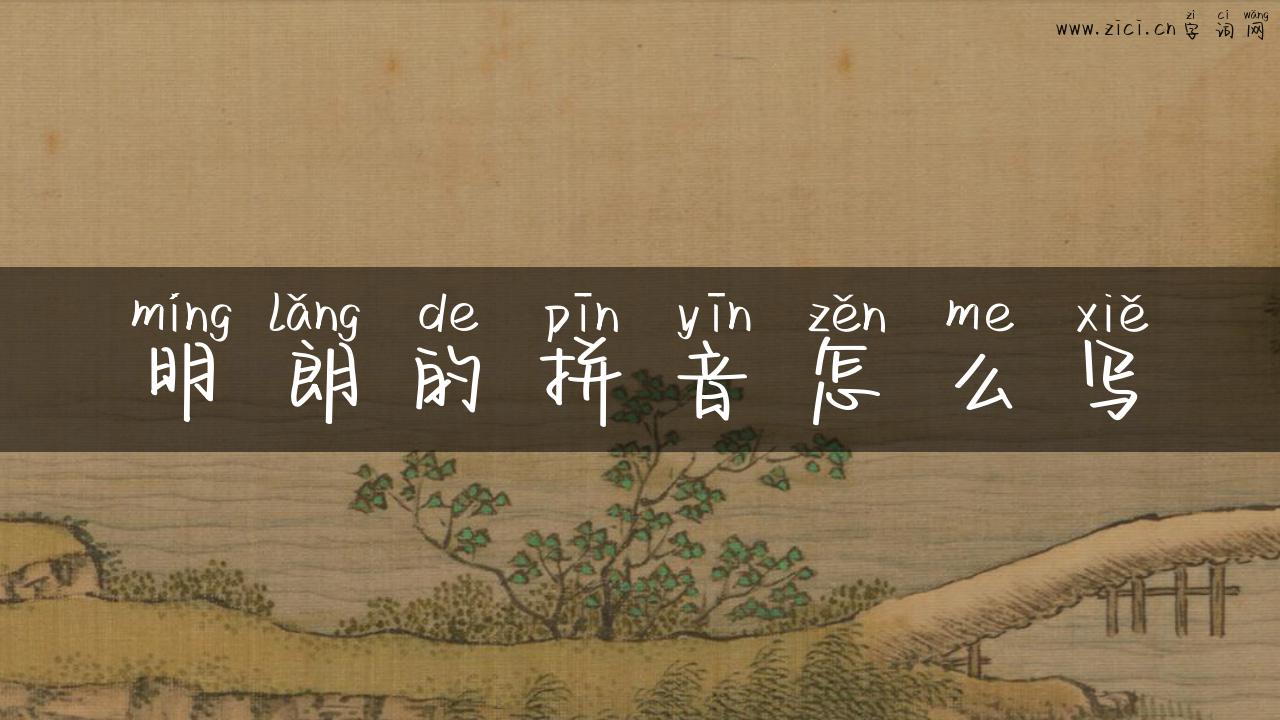 zì cí wǎng
www.zici.cn 字 词 网
míng lǎng de pīn yīn zěn me xiě
明 朗 的 拼 音 怎 么 写